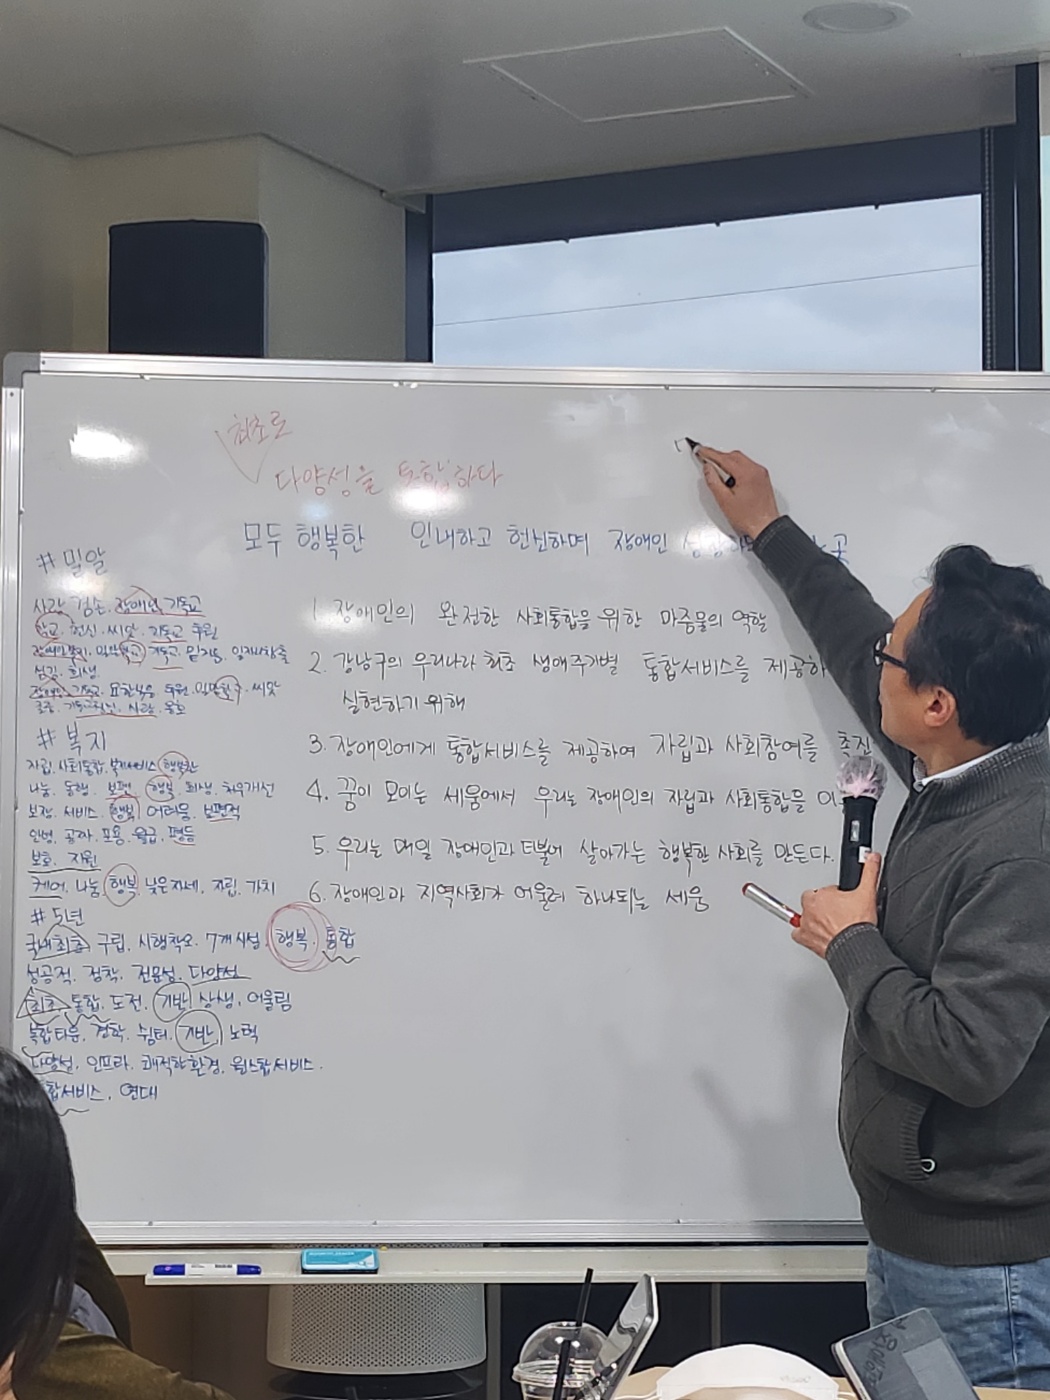 최초로
다양성을 통합하다
모두 행복한 인내하고 헌신하며 장애인
#밀알
사랑, 겸손, 장애인, 기독교
선교, 헌신, 씨앗, 기독교, 후원
기독교 일자리창출
섬김, 희생
장애인, 기독교, 후원, 씨앗
사랑, 옹호
#복지
자립, 사회통합, 복지서비스, 행복한
나눔, 동행, 보편, 행복, 희생, 처우개선
보장, 서비스, 행복, 어려움, 보편적
인권, 공감, 포용, 월급, 평등
보호, 지원
케어, 나눔, 행복, 낮은자세, 자립, 가치
#5년
국내최초, 구립, 시행착오, 7개시설, 행복, 통합
성공적, 정착, 전문성, 다양성
최초, 통합, 도전, 기반, 상생, 어울림
복합타운, 쉼터, 기반, 노력
다양성, 인프라, 쾌적한환경, 원스톱서비스.
합서비스, 연대
1. 장애인의 완전한 사회통합을 위한 마중물의 역할
2. 강남구의 우리나라 최초 생애주기별 통합서비스를 제공하
실현하기 위해
3. 장애인에게 통합서비스를 제공하여 자립과 사회참여를 촉진
4. 꿈이 모이는 세움에서 우리는 장애인의 자립과 사회통합을 이
5. 우리는 매일 장애인과 더불어 살아가는 행복한 사회를 만든다.
6. 장애인과 지역사회가 어울려 하나되는 세움